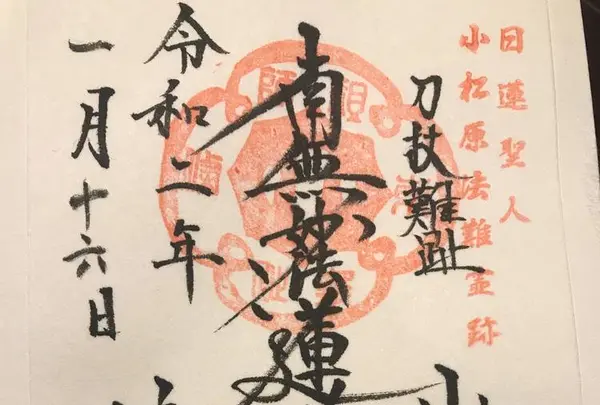 日蓮聖人
小松原法難霊跡
刀杖難趾
南無妙法蓮
令和二年
一月十六日